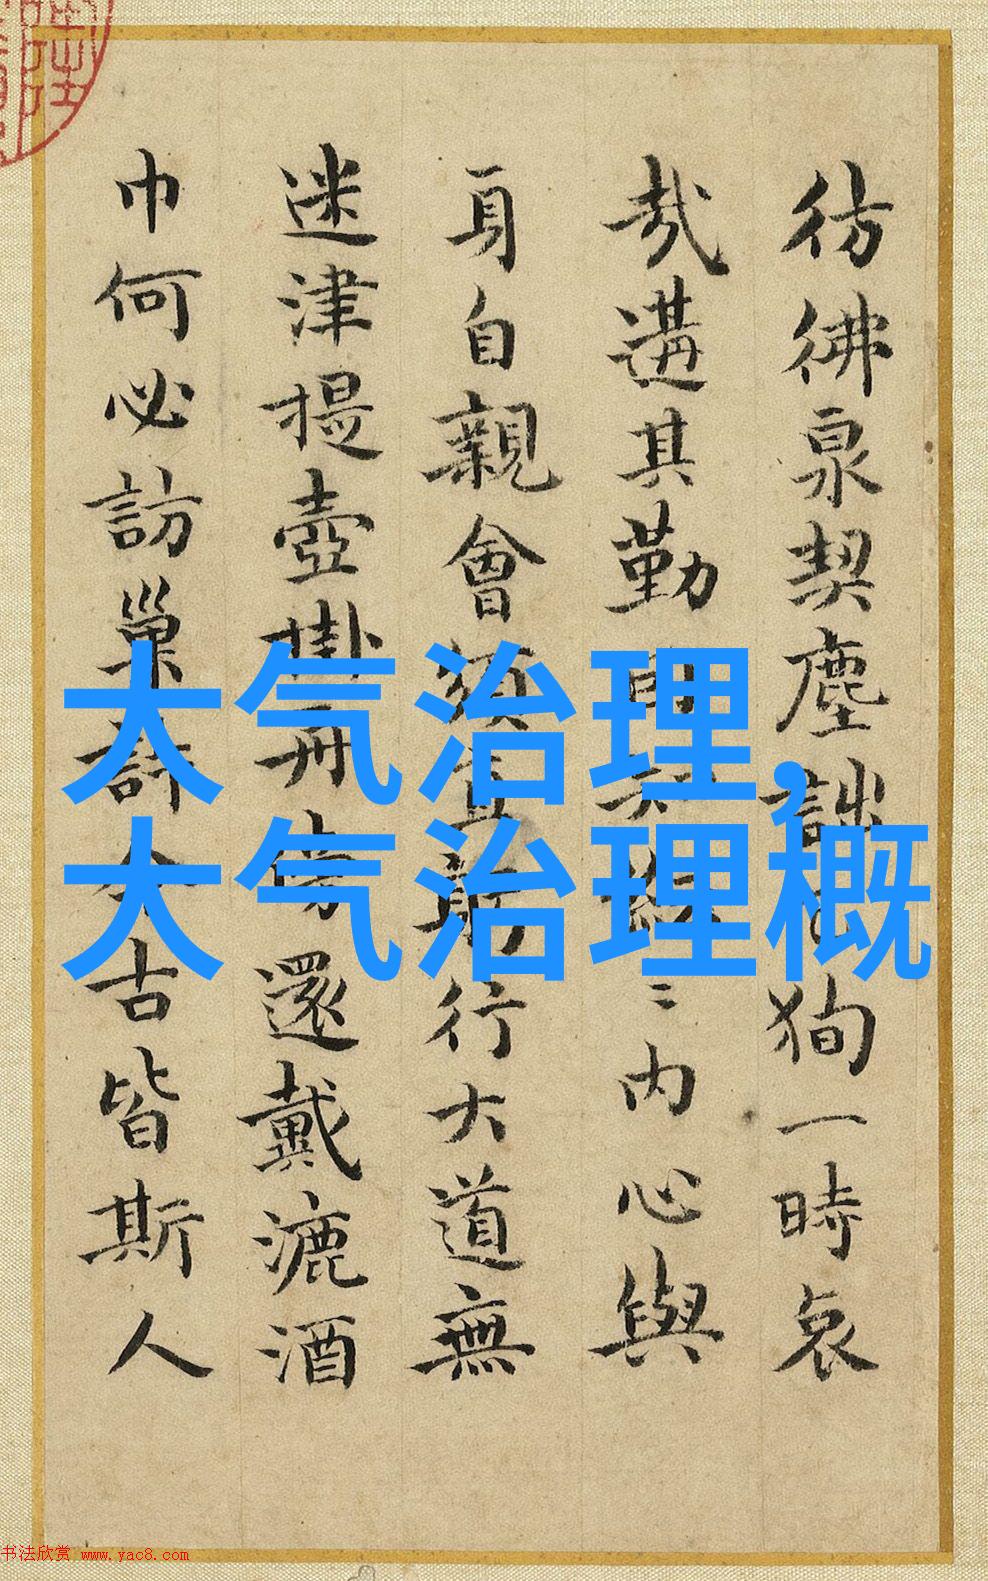 大气治理,
大气治理概
彷彿泉契塵狗一時哀
哉遘其勤内心與
身自親會須直行大道無
迷津提壺掛還戴漉酒
巾何必訪巢許今古皆斯人
书法欣赏 www.yac8.com